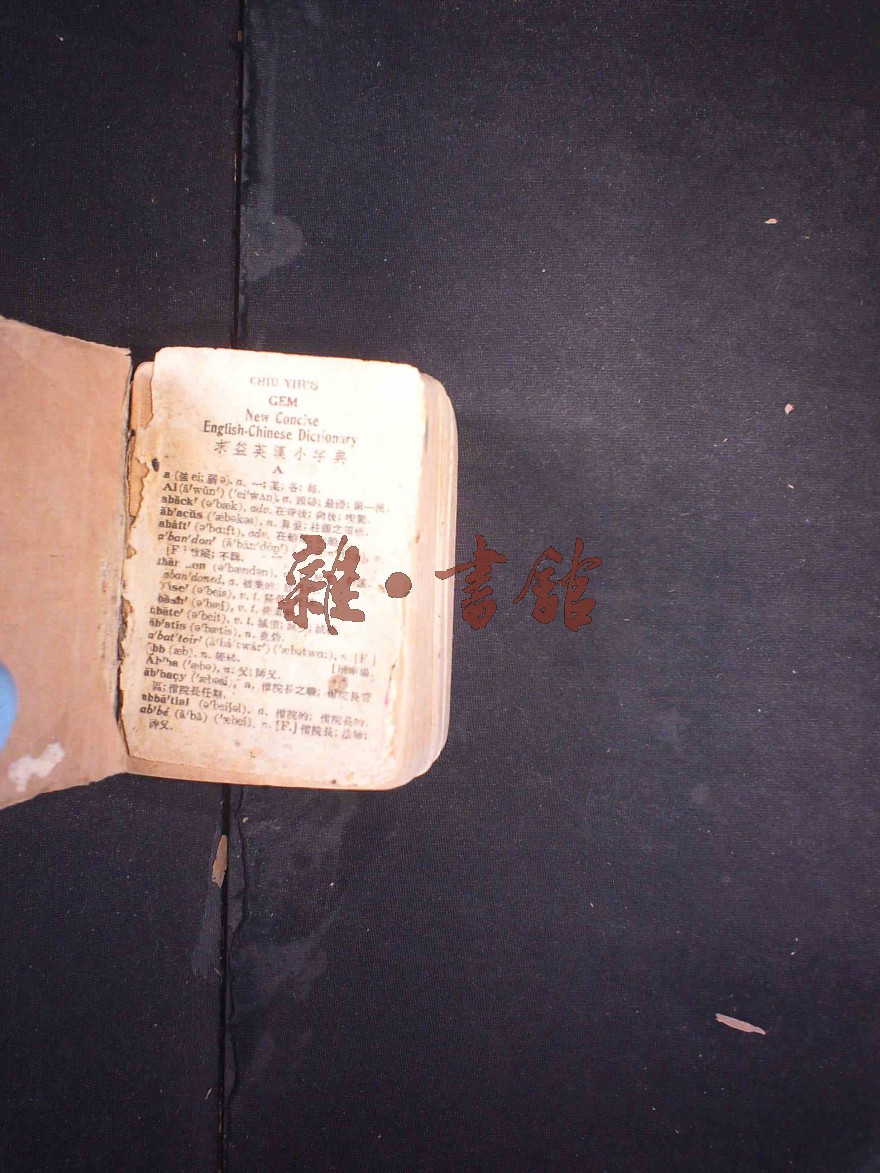 CHIU YIH'S
GEM
New Concise
English-Chinese Dictionary
求益英漢小字典
A
a (強 ei; 弱 ə), a. 一; 某; 各; 每.
A1 (ā'wŭn') ('ei'wʌn), a. 頭等; 最優; 第一流.
abăck' (ə'bæk), adv. 在背後; 向後; 喫驚.
ăb'acŭs ('æbəkəs), n. 算盤; 柱頭之頂板.
abáft' (ə'bɑ:ft), adv. 在船
a'ban'don'
[F.] 不羈.
(ə'bændən),
aban'doned, a.
(ə'beis), v. t.
(ə'bæʃ), v. t.
abāte' (ə'beit), v. t. 減
ăb'atis ('æbətis), n. 鹿砦.
a'bat'toir' ('æbətwɑ:), n. [F.]
(æb), n.
Ab'ba ('æbə), n. 父; 師父.
ăb'baçy ('æbəsi), n. 僧院長之職; 僧院長管
區; 僧院長任期.
abbā'tial (ə'beiʃəl), a. 僧院的; 僧院長的.
ab'bé (ă'bā) ('æbei), n. [F.] 僧院長; 法師;
神父.
雜·書館